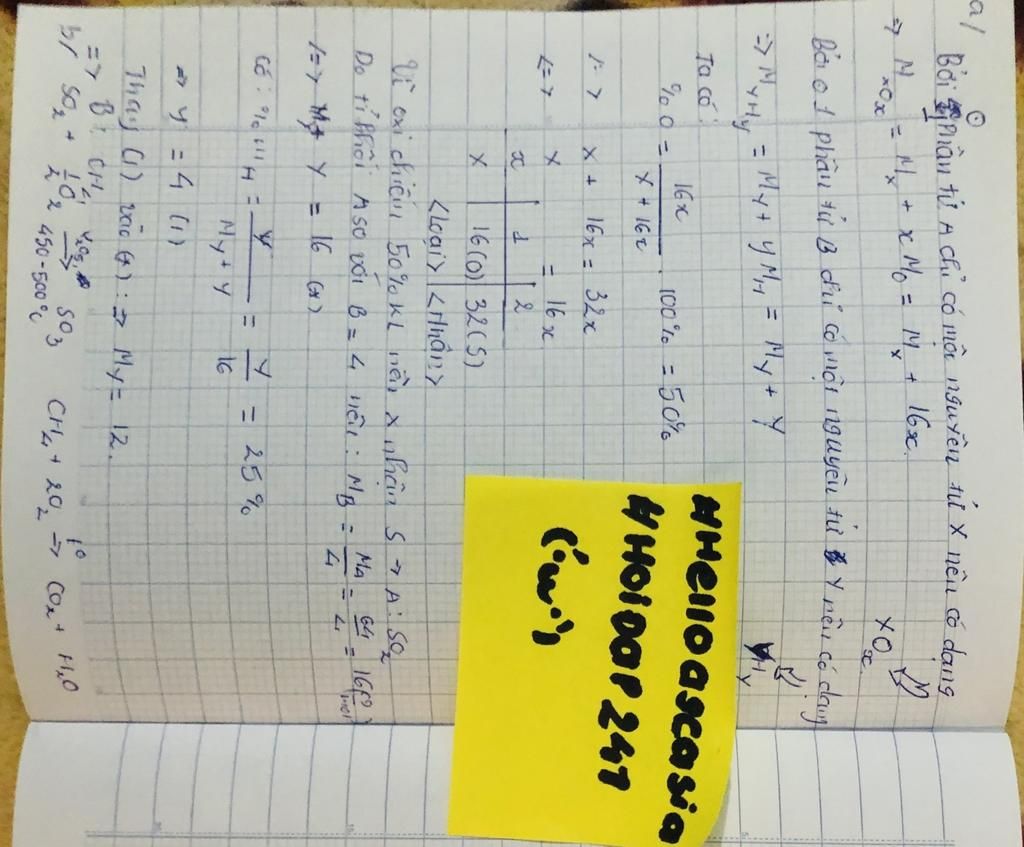 a/
Bởi 1 phân tử A chỉ có một nguyên tử X nên có dạng XOx
=> M XOx = Mx + xMO = Mx + 16x.
Bởi 1 phân tử B chỉ có một nguyên tử Y nên có dạng YHy
=> MYHy = My + yMH = My + y
Ta có:
%O = 16x / X + 16x . 100% = 50%
<=> X + 16x = 32x
<=> X = 16x
x | 1 | 2
X | 16(O) | 32(S)
<Loại> <Nhận>
Vì oxi chiếm 50% KL nên X nhận S → A: SO2
Do tỉ khối A so với B = 4 nên: MB = MA/4 = 64/4 = 16(g/mol)
<=> My + y = 16 (*)
Có: %mH = y / My + y = y/16 = 25%
=> y = 4 (1)
Thay (1) vào (*): => My = 12.
=> B: CH4
b/ SO2 + 1/2O2 V2O5→ 450-500°C SO3 CH4 + 2O2 t°→ CO2 + H2O
#Helloascasia
#HOIDAP247
('ω')